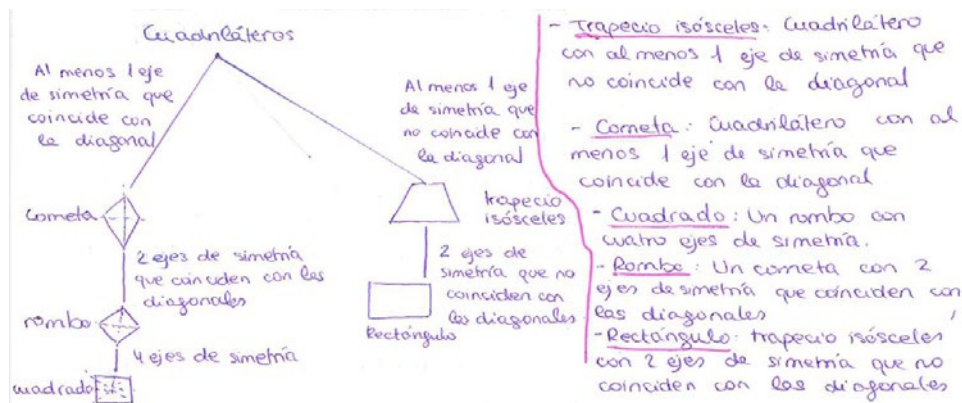 Cuadriláteros
Al menos 1 eje
de simetría que
coincide con
la diagonal
Al menos 1 eje
de simetría que
no coincide con
la diagonal
cometa
trapecio
isósceles
2 ejes de simetría
que coinciden con las
diagonales
2 ejes de
simetría que no
coinciden con
las diagonales
rombo
Rectángulo
4 ejes de simetría
cuadrado
- Trapecio isósceles: Cuadrilátero
con al menos 1 eje de simetría que
no coincide con la diagonal
- Cometa: Cuadrilátero con al
menos 1 eje de simetría que
coincide con la diagonal
- Cuadrado: Un rombo con
cuatro ejes de simetría.
- Rombo: Un cometa con 2
ejes de simetría que coinciden con
las diagonales
- Rectángulo: trapecio isósceles
con 2 ejes de simetría que no
coinciden con las diagonales